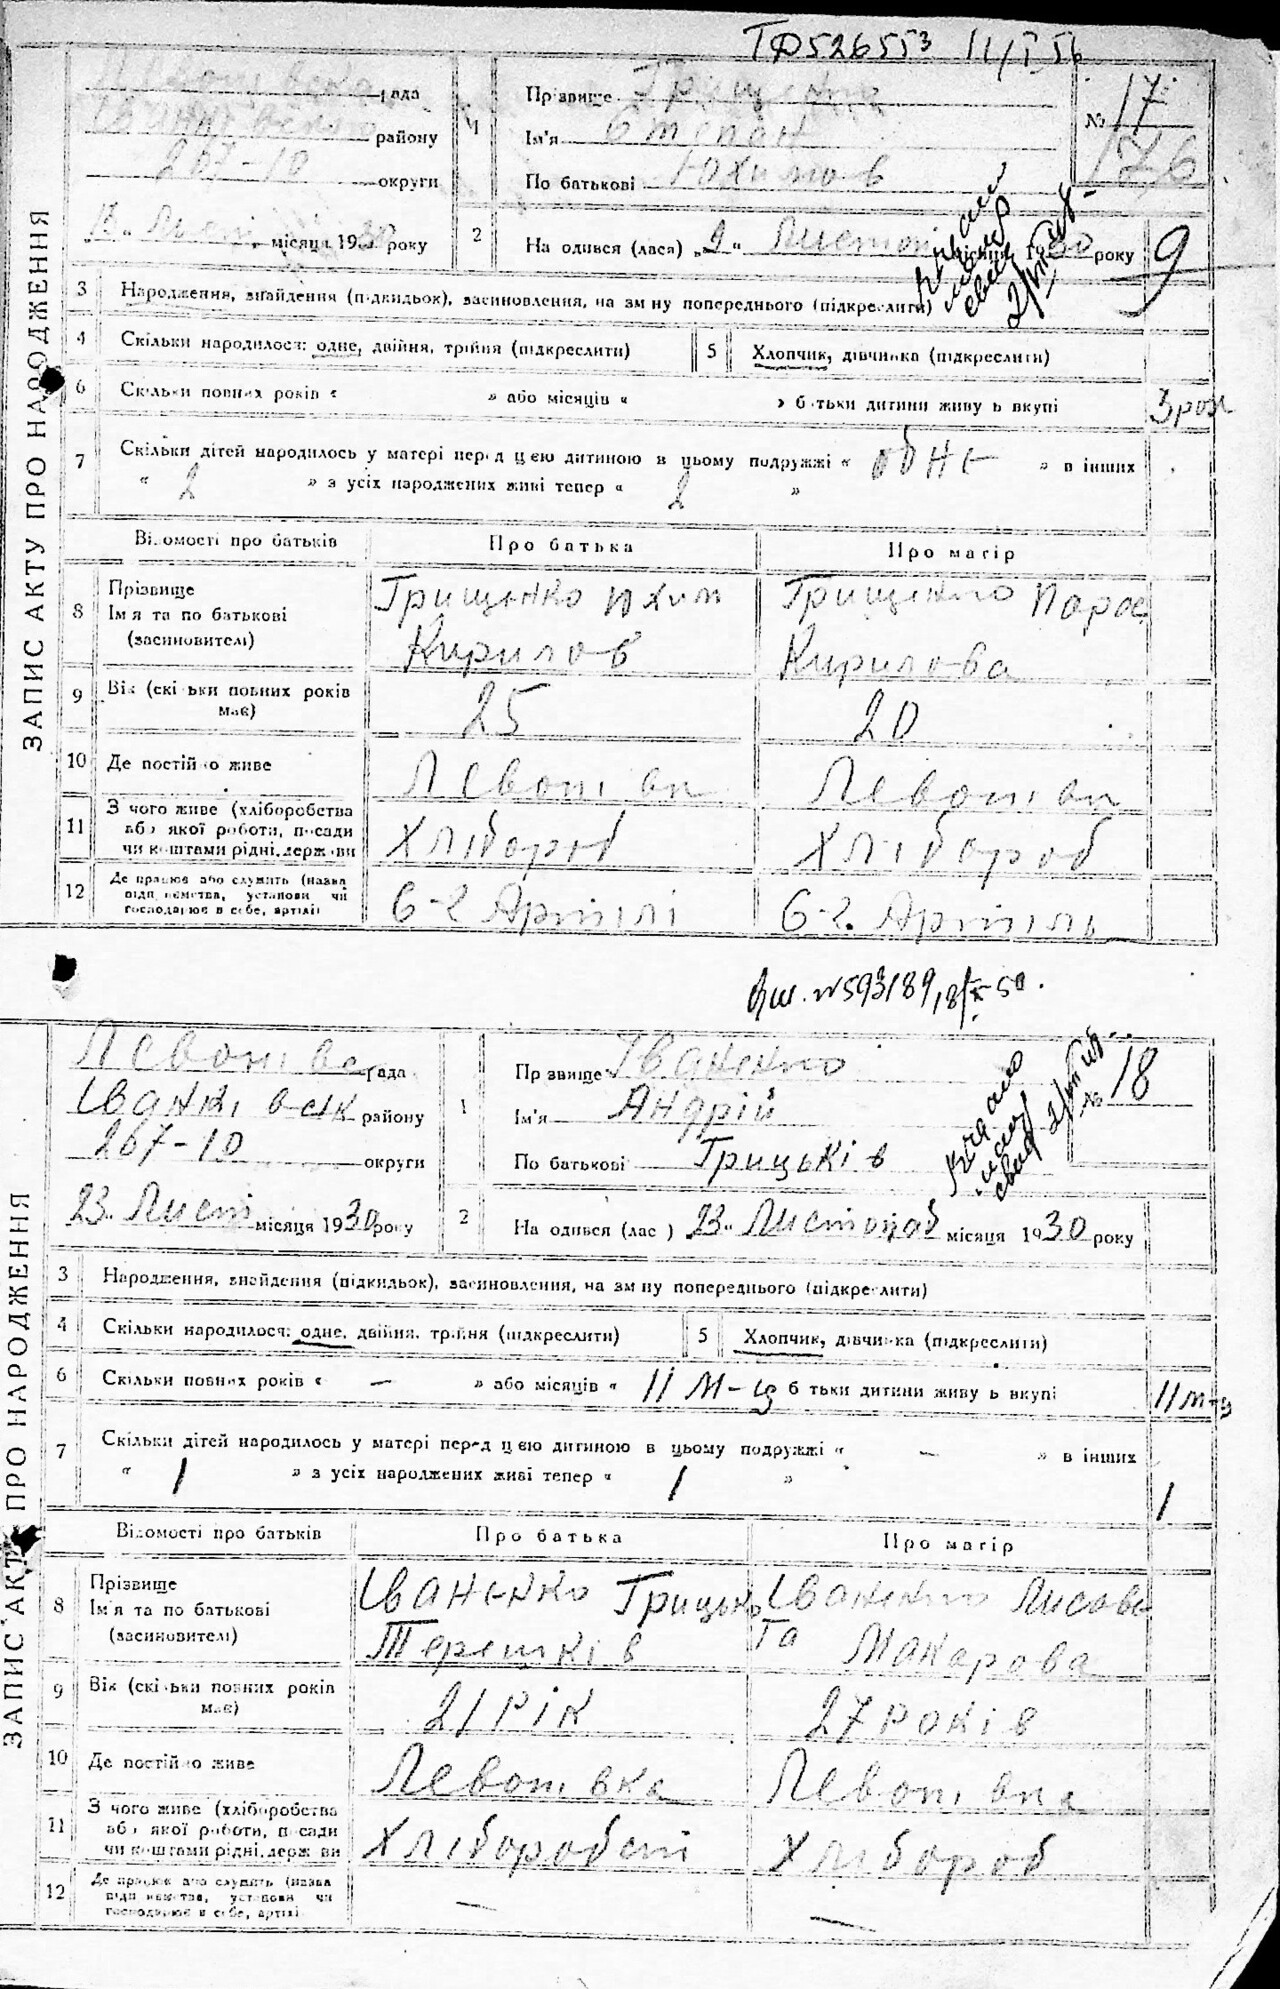 ТФ526553 11/I 56
ЗАПИС АКТУ ПРО НАРОДЖЕННЯ
рада
району
267-10 округи
місяця 1930 року
1
Прізвище Грищенко
Ім'я Степан
По батькові Юхимов
№ 17
176
2
На одився (лася) „9“ Листоп місяця 1930 року
9
3 Народження, знайдення (підкидьок), засиновлення, на зм ну попереднього (підкреслити)
4 Скільки народилося: одне, двійня, трійня (підкреслити)
5 Хлопчик, дівчинка (підкреслити)
6 Скільки повних років « » або місяців « » б тьки дитини живу ь вкупі
3 рок
7 Скільки дітей народилось у матері перед цією дитиною в цьому подружжі « одне » в інших
« 2 » з усіх народжених живі тепер « 2 »
Відомості про батьків Про батька Про матір
8 Прізвище
Ім'я та по батькові
(засиновителі)
Грищенко Юхим
Кирилов
Грищенко Парас
Кирилова
9 Вік (скільки повних років має) 25 20
10 Де постійно живе
11 З чого живе (хліборобства або якої роботи, посади чи коштами рідні, держави Хлібороб Хлібороб
12 Де працює або служить (назва підприємства, установи чи господарює в себе, артілі) 6-2 Артілі 6-2. Артіль
Виш. №593189, 18/X-50.
ЗАПИС АКТУ ПРО НАРОДЖЕННЯ
рада
району
267-10 округи
23 Лист місяця 1930 року
1
Пр звище Іваненко
Ім'я Андрій
По батькові Грицьків
№ 18
2
На одився (лас ) 23 Листопад місяця 1930 року
3 Народження, знайдення (підкидьок), засиновлення, на зм ну попереднього (підкреслити)
4 Скільки народилося: одне, двійня, трійня (підкреслити)
5 Хлопчик, дівчинка (підкреслити)
6 Скільки повних років « — » або місяців « 11 м-ц б тьки дитини живу ь вкупі
11 м-ц
7 Скільки дітей народилось у матері перед цією дитиною в цьому подружжі « — » в інших
« 1 » з усіх народжених живі тепер « 1 »
1
Відомості про батьків Про батька Про матір
8 Прізвище
Ім'я та по батькові
(засиновителі)
Іваненко Грицько
Терешків
Іваненко Лисаве
та Макарова
9 Вік (скільки повних років має) 21 рік 27 років
10 Де постійно живе
11 З чого живе (хліборобства або якої роботи, посади чи коштами рідні, держави Хліборобст Хлібороб
12 Де працює або служить (назва підприємства, установи чи господарює в себе, артілі — —